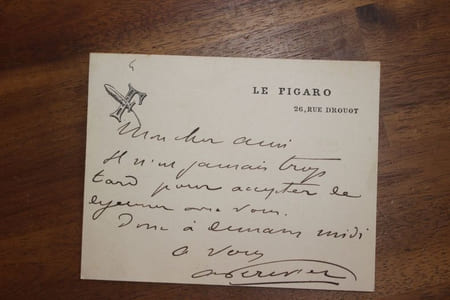 LE FIGARO
26, RUE DROUOT
F
Mon cher ami
Il n'est jamais trop
tard pour accepter de
déjeuner avec vous.
Donc à demain midi
à vous